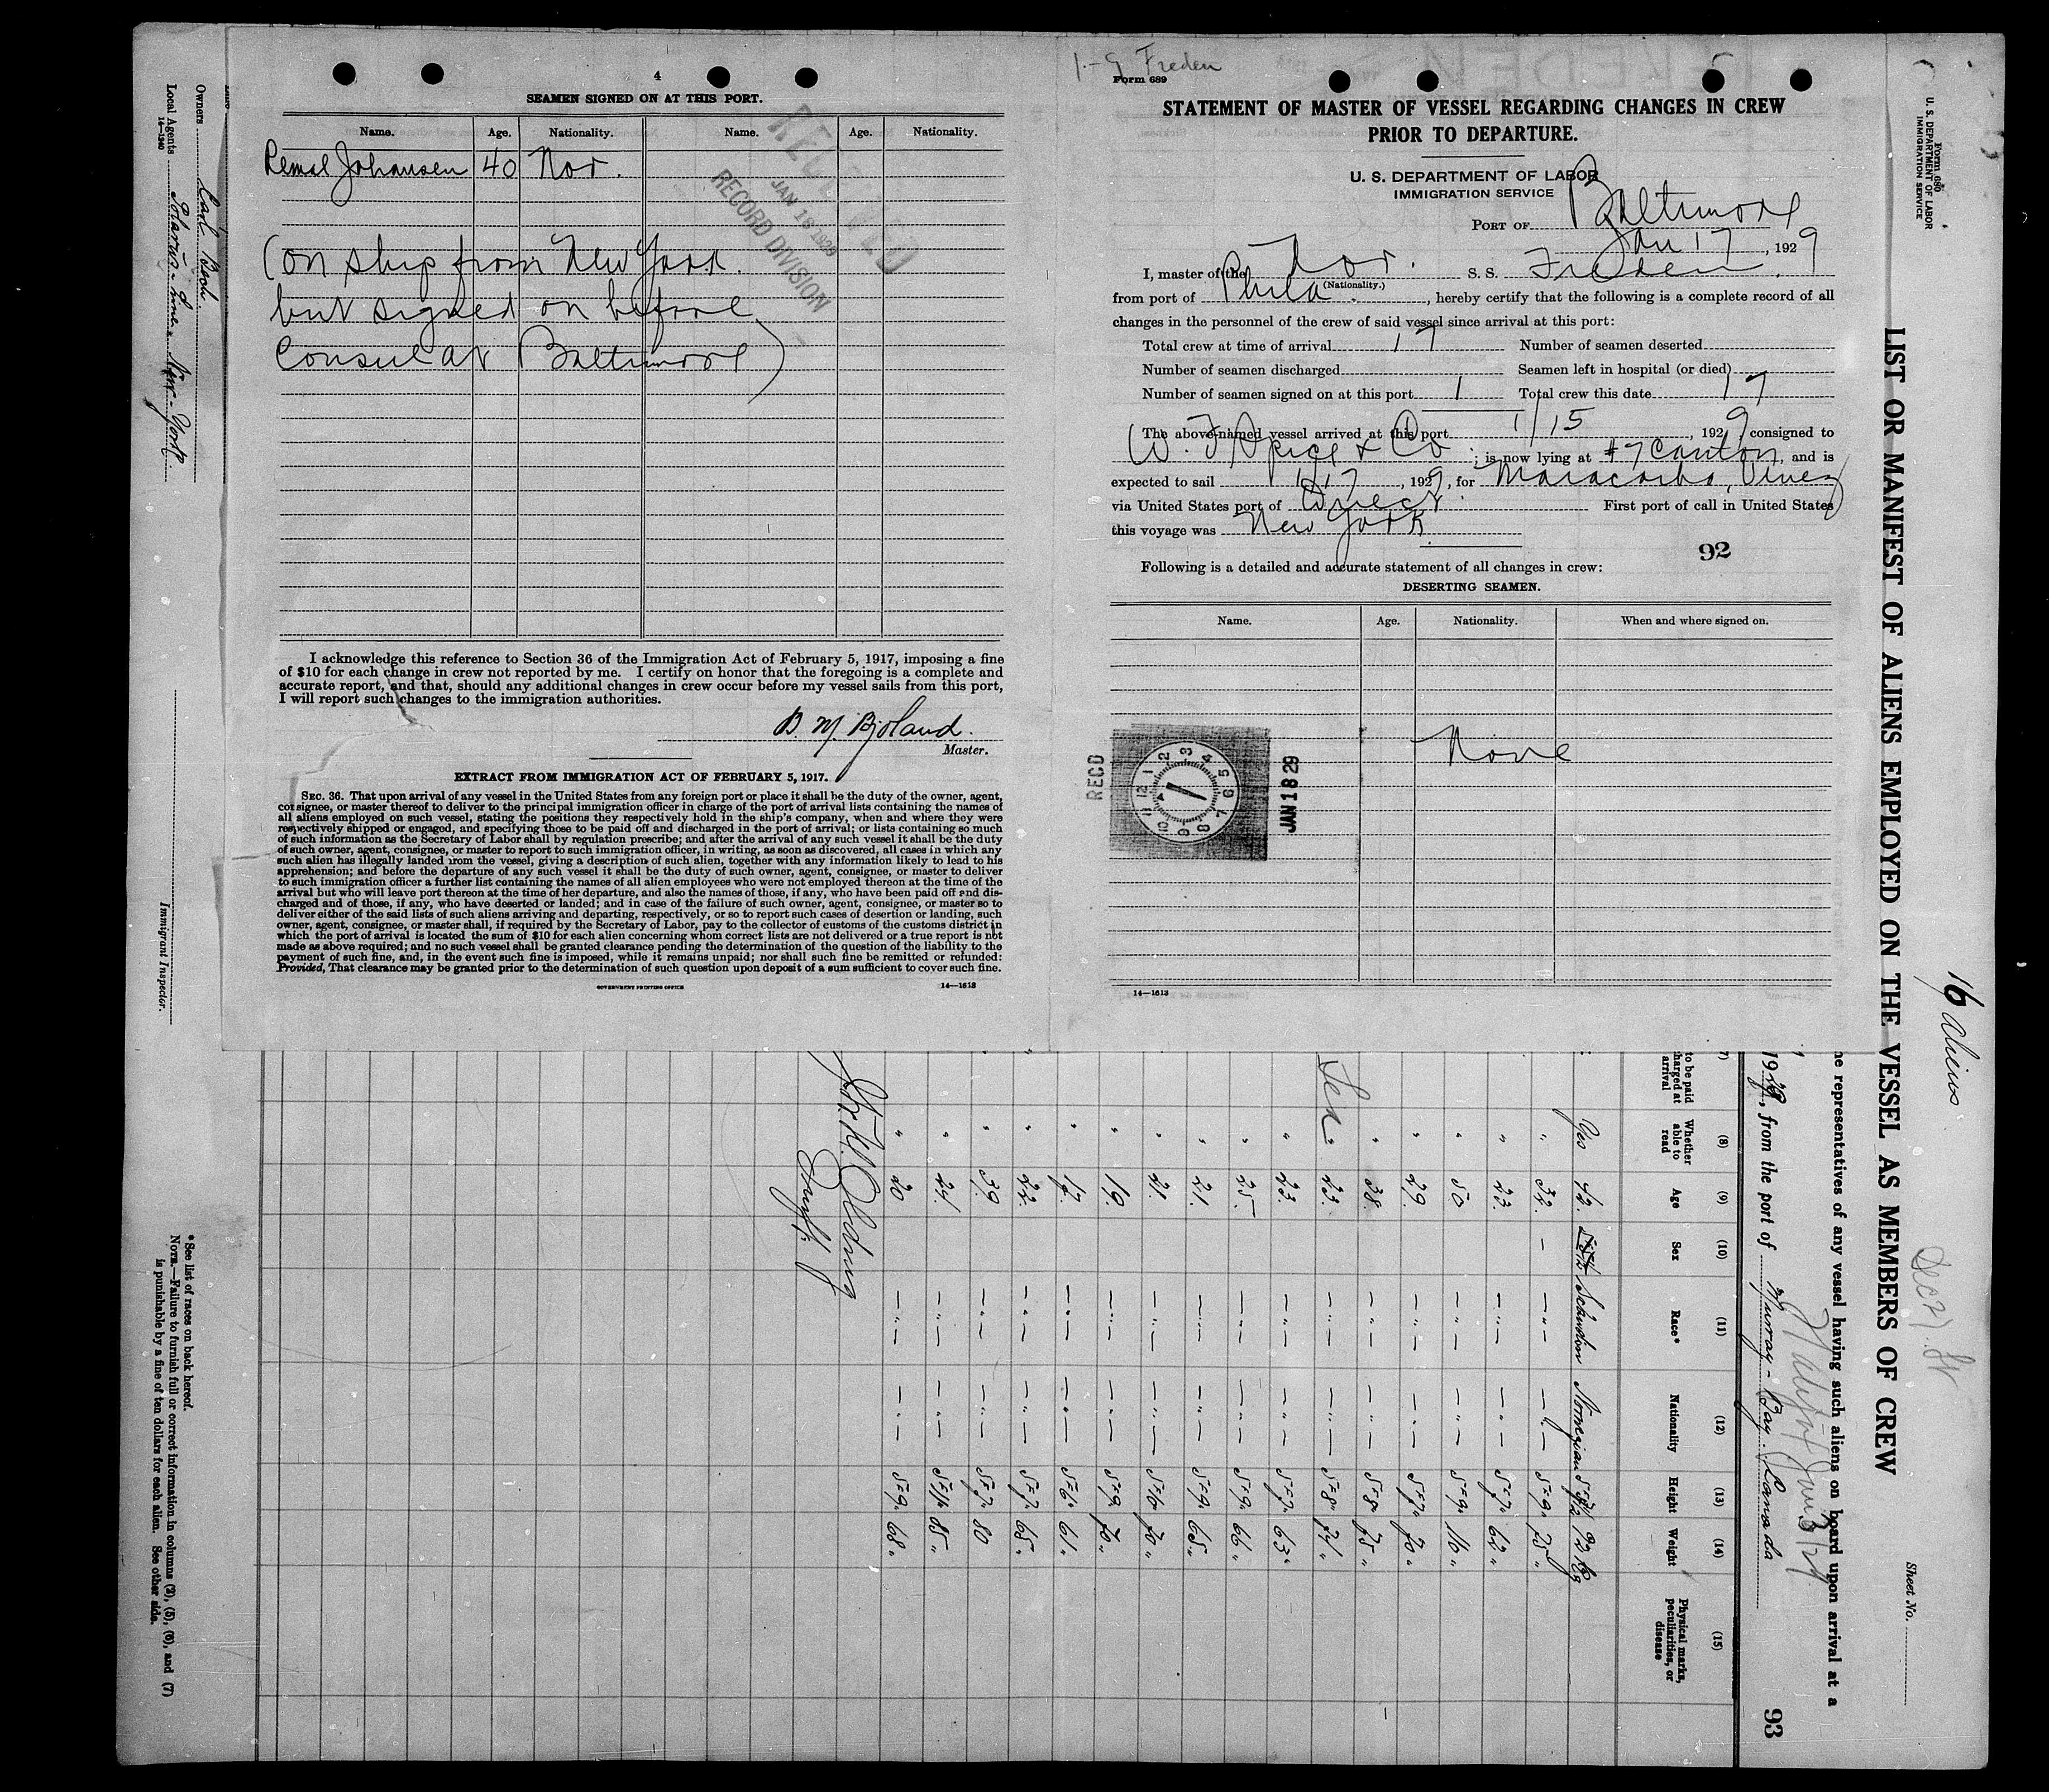 4
SEAMEN SIGNED ON AT THIS PORT.
Name. Age. Nationality. Name. Age. Nationality.
Johansen 40 Nor.
(on ship from New York
but signed on before
Consul at Baltimore)
RECEIVED
JAN 18 1929
RECORD DIVISION
I acknowledge this reference to Section 36 of the Immigration Act of February 5, 1917, imposing a fine
of $10 for each change in crew not reported by me. I certify on honor that the foregoing is a complete and
accurate report, and that, should any additional changes in crew occur before my vessel sails from this port,
I will report such changes to the immigration authorities.
B. M. Bjoland.
Master.
EXTRACT FROM IMMIGRATION ACT OF FEBRUARY 5, 1917.
SEC. 36. That upon arrival of any vessel in the United States from any foreign port or place it shall be the duty of the owner, agent,
consignee, or master thereof to deliver to the principal immigration officer in charge of the port of arrival lists containing the names of
all aliens employed on such vessel, stating the positions they respectively hold in the ship's company, when and where they were
respectively shipped or engaged, and specifying those to be paid off and discharged in the port of arrival; or lists containing so much
of such information as the Secretary of Labor shall by regulation prescribe; and after the arrival of any such vessel it shall be the duty
of such owner, agent, consignee, or master to report to such immigration officer, in writing, as soon as discovered, all cases in which any
such alien has illegally landed from the vessel, giving a description of such alien, together with any information likely to lead to his
apprehension; and before the departure of any such vessel it shall be the duty of such owner, agent, consignee, or master to deliver
to such immigration officer a further list containing the names of all alien employees who were not employed thereon at the time of the
arrival but who will leave port thereon at the time of her departure, and also the names of those, if any, who have been paid off and dis-
charged and of those, if any, who have deserted or landed; and in case of the failure of such owner, agent, consignee, or master so to
deliver either of the said lists of such aliens arriving and departing, respectively, or so to report such cases of desertion or landing, such
owner, agent, consignee, or master shall, if required by the Secretary of Labor, pay to the collector of customs of the customs district in
which the port of arrival is located the sum of $10 for each alien concerning whom correct lists are not delivered or a true report is not
made as above required; and no such vessel shall be granted clearance pending the determination of the question of the liability to the
payment of such fine, and, in the event such fine is imposed, while it remains unpaid; nor shall such fine be remitted or refunded:
Provided, That clearance may be granted prior to the determination of such question upon deposit of a sum sufficient to cover such fine.
GOVERNMENT PRINTING OFFICE 14—1613
1-9 Freden
Form 689
STATEMENT OF MASTER OF VESSEL REGARDING CHANGES IN CREW
PRIOR TO DEPARTURE.
U. S. DEPARTMENT OF LABOR
IMMIGRATION SERVICE
PORT OF Baltimore
Jan 17, 1929
I, master of the Nor. S. S. Freden.
(Nationality.)
from port of Phila., hereby certify that the following is a complete record of all
changes in the personnel of the crew of said vessel since arrival at this port:
Total crew at time of arrival 17 Number of seamen deserted
Number of seamen discharged Seamen left in hospital (or died)
Number of seamen signed on at this port 1 Total crew this date 17
The above-named vessel arrived at this port 1/15, 1929, consigned to
& Co; is now lying at #7 Canton, and is
expected to sail 1/17, 1929, for
via United States port of Direct. First port of call in United States
this voyage was New York
92
Following is a detailed and accurate statement of all changes in crew:
DESERTING SEAMEN.
Name. Age. Nationality. When and where signed on.
None
RECD
1 2 3 4 5 6 7 8 9 10 11 12
JAN 18 29
14—1613
Form 680
U. S. DEPARTMENT OF LABOR
IMMIGRATION SERVICE
LIST OR MANIFEST OF ALIENS EMPLOYED ON THE VESSEL AS MEMBERS OF CREW
16 Aliens
Sheet No.
he representatives of any vessel having such aliens on board upon arrival at a
, from the port of Murray-Bay Canada
93
to be paid
charged at
arrival
(8) Whether able to read
(9) Age
(10) Sex
(11) Race*
(12) Nationality
(13) Height
(14) Weight
(15) Physical marks, peculiarities, or disease
Yes 42. Norwegian
32. 5-9. 75 "
" 23. — " — — " — 5-7. 62 "
" 50 — " — — " — 5-9. 110 "
" 29. — " — — " — 5-7. 70 "
" 38. — " — — " — 5-8. 75 "
" 23. — " — — " — 5-8. 74 "
" 23. — " — — " — 5-7. 63 "
" 25. — " — — " — 5-9. 66 "
" 21. — " — — " — 5-9. 65 "
" 21. — " — — " — 70 "
" 19. — " — — " — 5-9. 70 "
" 17. — " — — " — 5-6. 61 "
" 22. — " — — " — 5-7. 65 "
" 39. — " — — " — 5-7. 80
" 24. — " — — " — 85 "
" 20 — " — — " — 5-9. 68 "
Owners Carl Bech.
Local Agents Polarus-Line, New-York.
14—1240
Immigrant Inspector.
*See list of races on back hereof.
NOTE.—Failure to furnish full or correct information in columns (2), (5), (6), and (7)
is punishable by a fine of ten dollars for each alien. See other side.